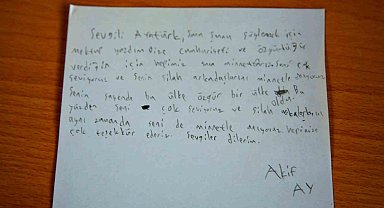 Sevgili Atatürk, Sana Bunu söylemek için
mektup yazdım Bize cumhuriyeti ve özgürlüğü
verdiğin için hepimiz sana minnettarız Seni çok
seviyoruz ve Senin silah arkadaşlarını minnetle anıyoruz
Senin sayende bu ülke özgür bir ülke oldu. Bu
yüzden seni çok seviyoruz ve silah arkadaşlarını
aynı zamanda seni de minnetle anıyoruz hepinize
çok teşekkür ederiz. Sevgiler dilerim.
Akif
AY